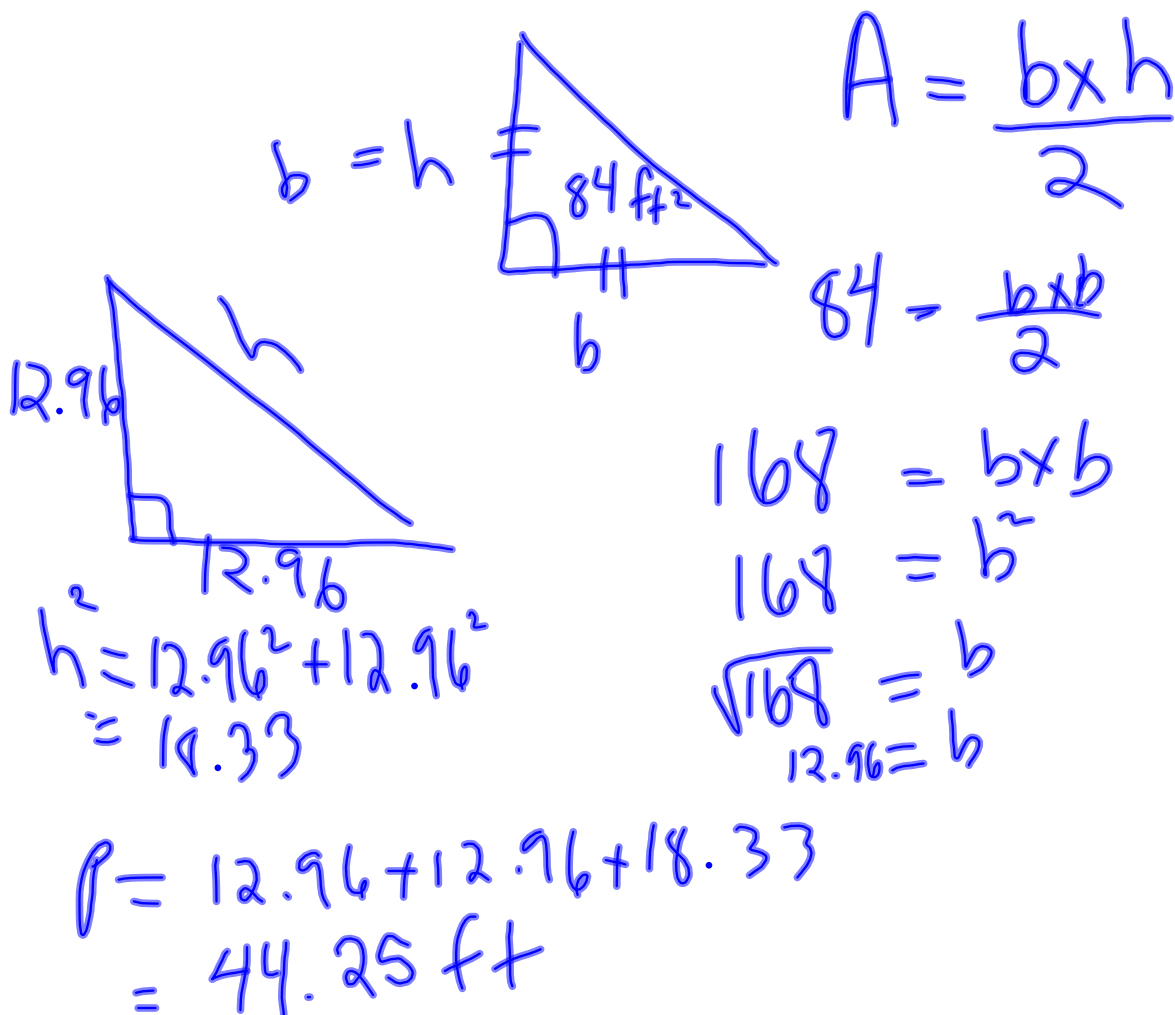 A = b x h / 2
b = h
84 ft²
b
84 = b x b / 2
168 = b x b
168 = b²
√168 = b
12.96 = b
h
12.96
12.96
h² = 12.96² + 12.96²
= 18.33
P = 12.96 + 12.96 + 18.33
= 44.25 ft